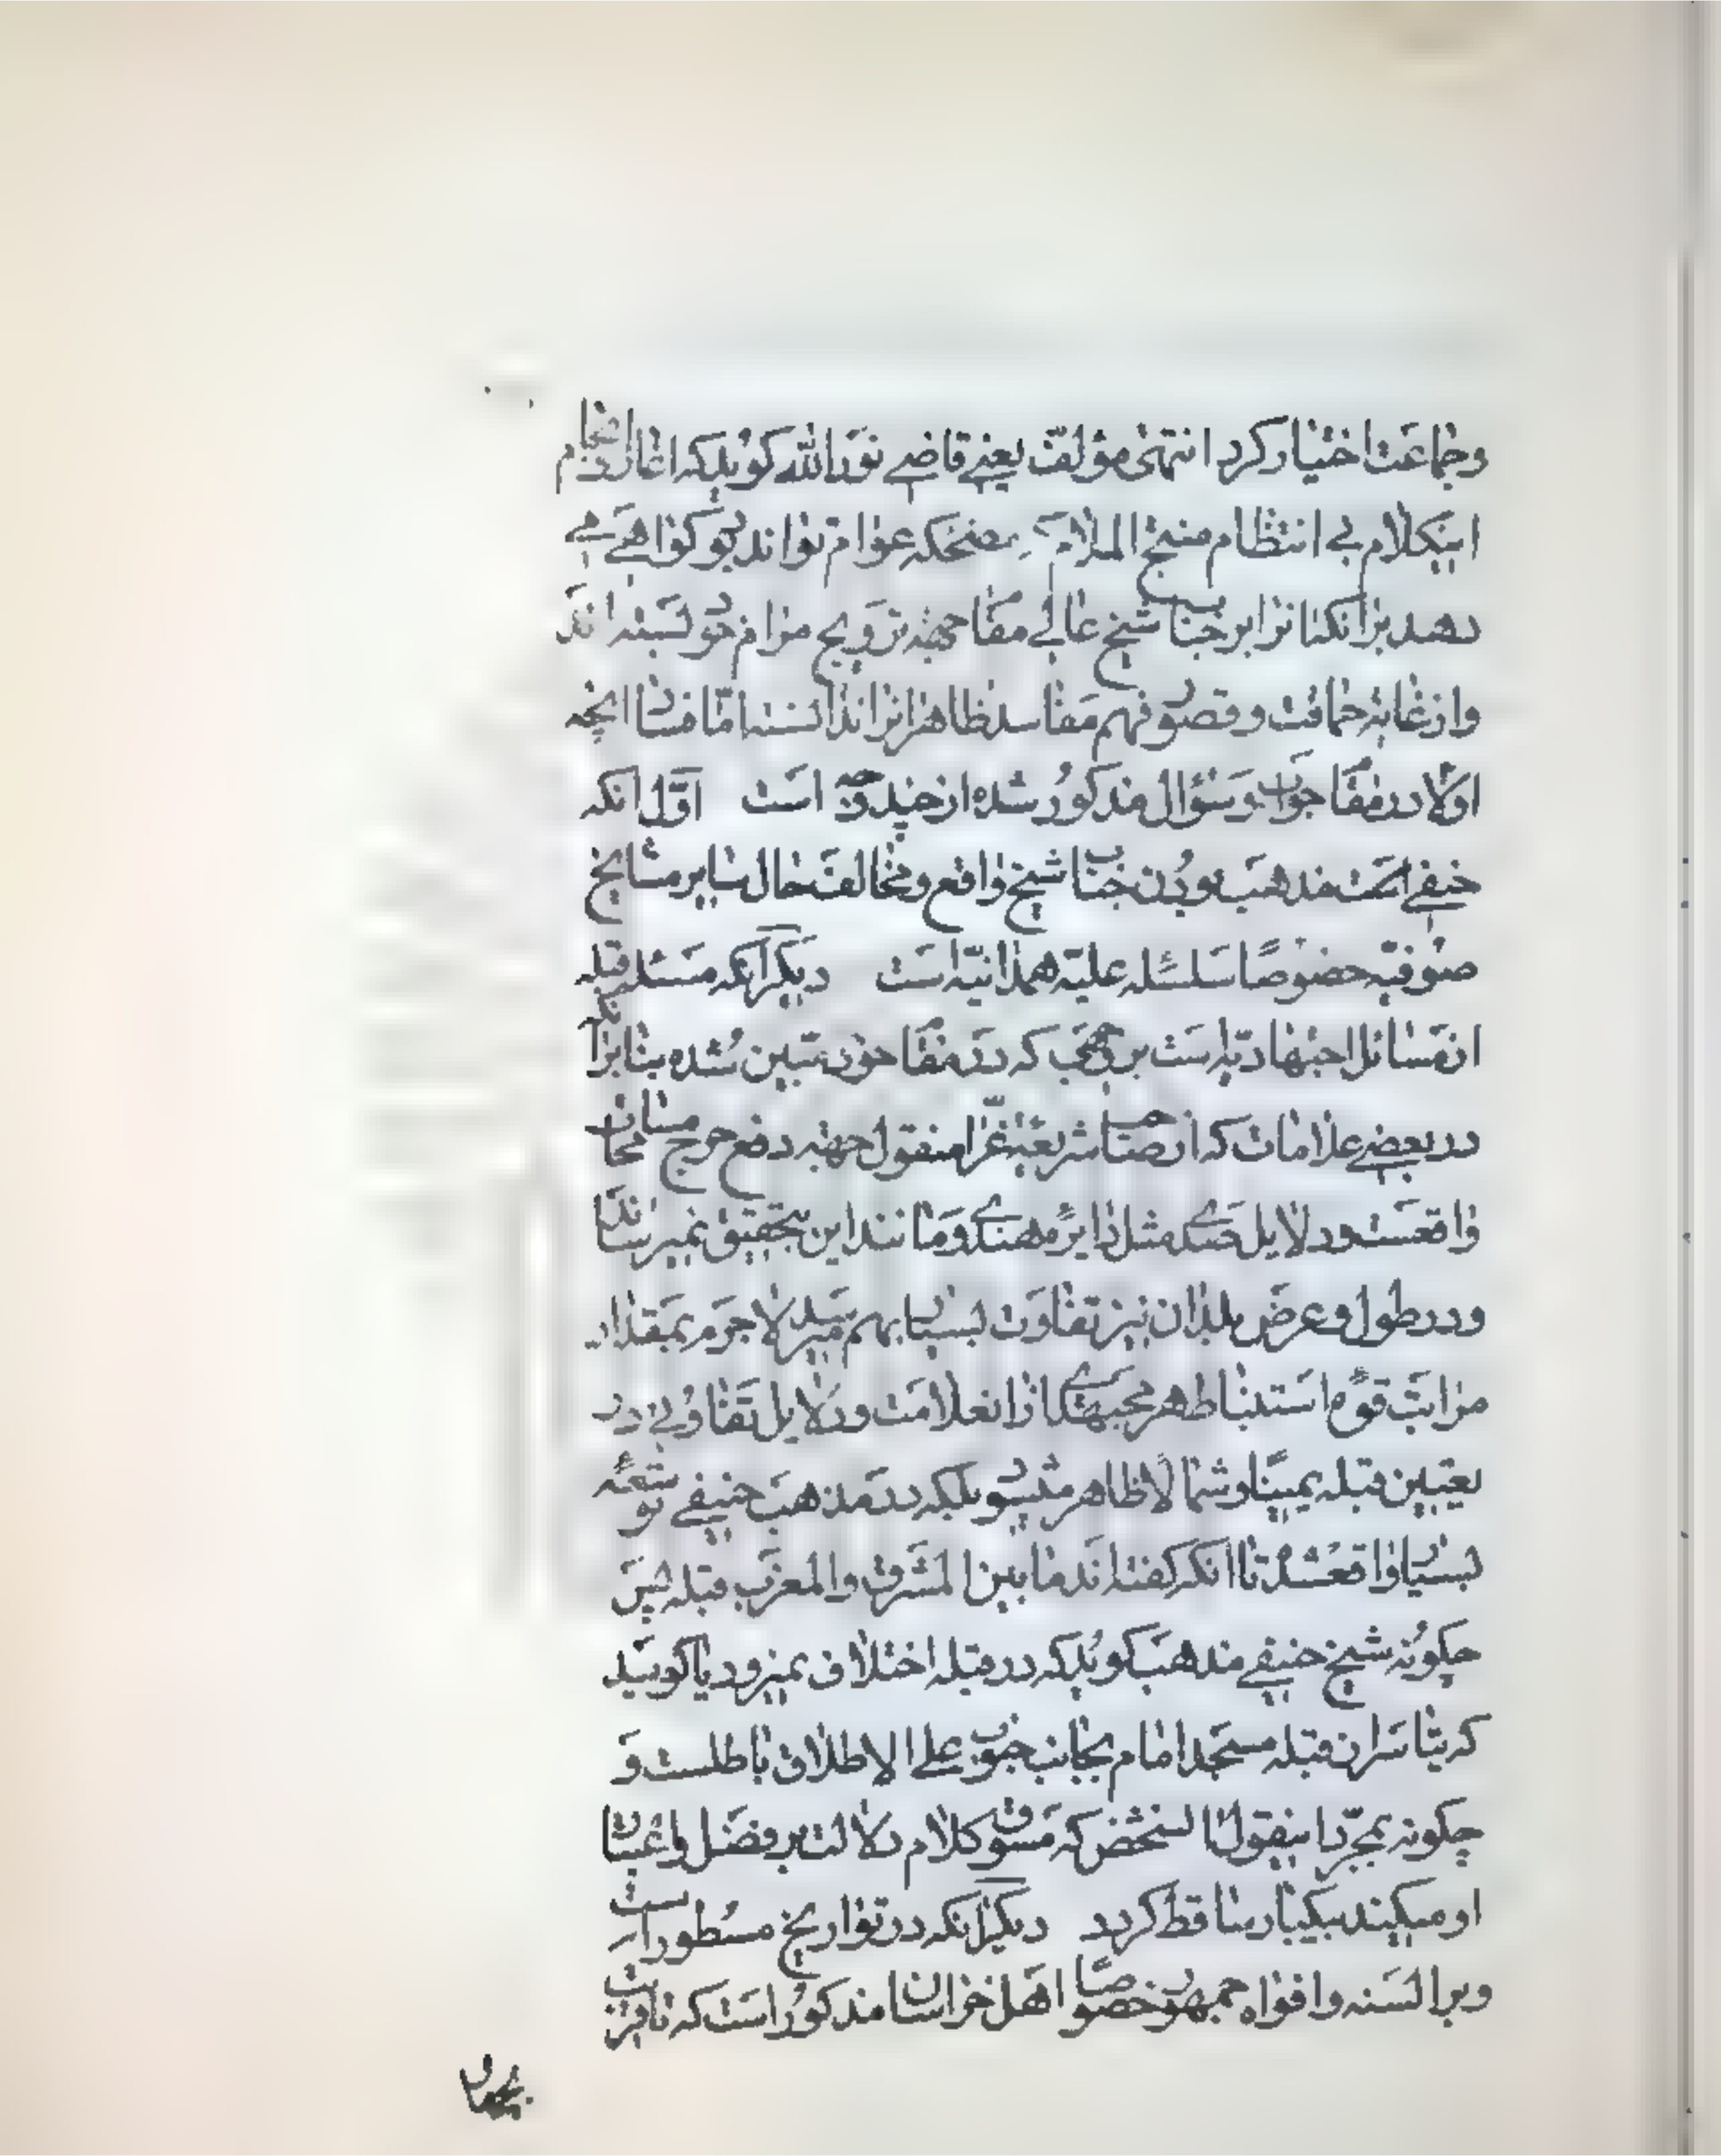 وجماعت اختیار کرد انتهی مؤلف یعنی قاضی نورالله کوید که اغاز و انجام
اینکلام بی انتظام منتج الملام مضحکه عوام تواند بود کواهی می
دهد بر انکه انرا بر جناب شیخ عالی مقام جهة ترویج مرام خود بسته اند
واز غایة حماقت و قصور فهم مفاسد ظاهر انرا ندانسته اما فساد انچه
اولا در مقام جواب و سؤال مذکور شده از چند وجه است اول انکه
حنفی مذهب بودن جناب شیخ واقع و مخالف حال سایر مشایخ
صوفیه خصوصا سلسله علیه همدانیه است دیکر آنکه مسئله قبله
از مسائل اجتهادیه است بر وجهی که در مقام خود مبین شده بنا بر آنکه
در بعضی علامات که از صاحب شریعة غرا منقول جهة دفع حرج مسامحات
واقعست و دلایل حدسی مثل دایره هندی و مانند این بتحقیق نمیرسانند
و در طول و عرض بلدان نیز تفاوت بسیار بهم میرسد لاجرم بمقدار
مراتب قوه استنباط هر مجتهدی از انعلامت و دلایل تفاوتی در
تعیین قبله یمینا و شمالا ظاهر میشود بلکه در مذهب حنیفی توسعه
بسیار واقعشده تا انکه کفته اند ما بین المشرق والمغرب قبله پس
چکونه شیخ حنیفی مذهب کوید که در قبله اختلاف نمیرود یا کوید
که تیاسر از قبله مسجد امام بجانب جنوب علی الاطلاق باطلست و
چکونه بمجرد اینقول انشخص که مسوق کلام دلالت بر فضل و اعتبار
او میکند بیکبار ساقط کردد دیکر انکه در تواریخ مسطور است
و بر السنه و افواه جمهور خصوصا اهل خراسان مذکور است که تا قریب
بچهار